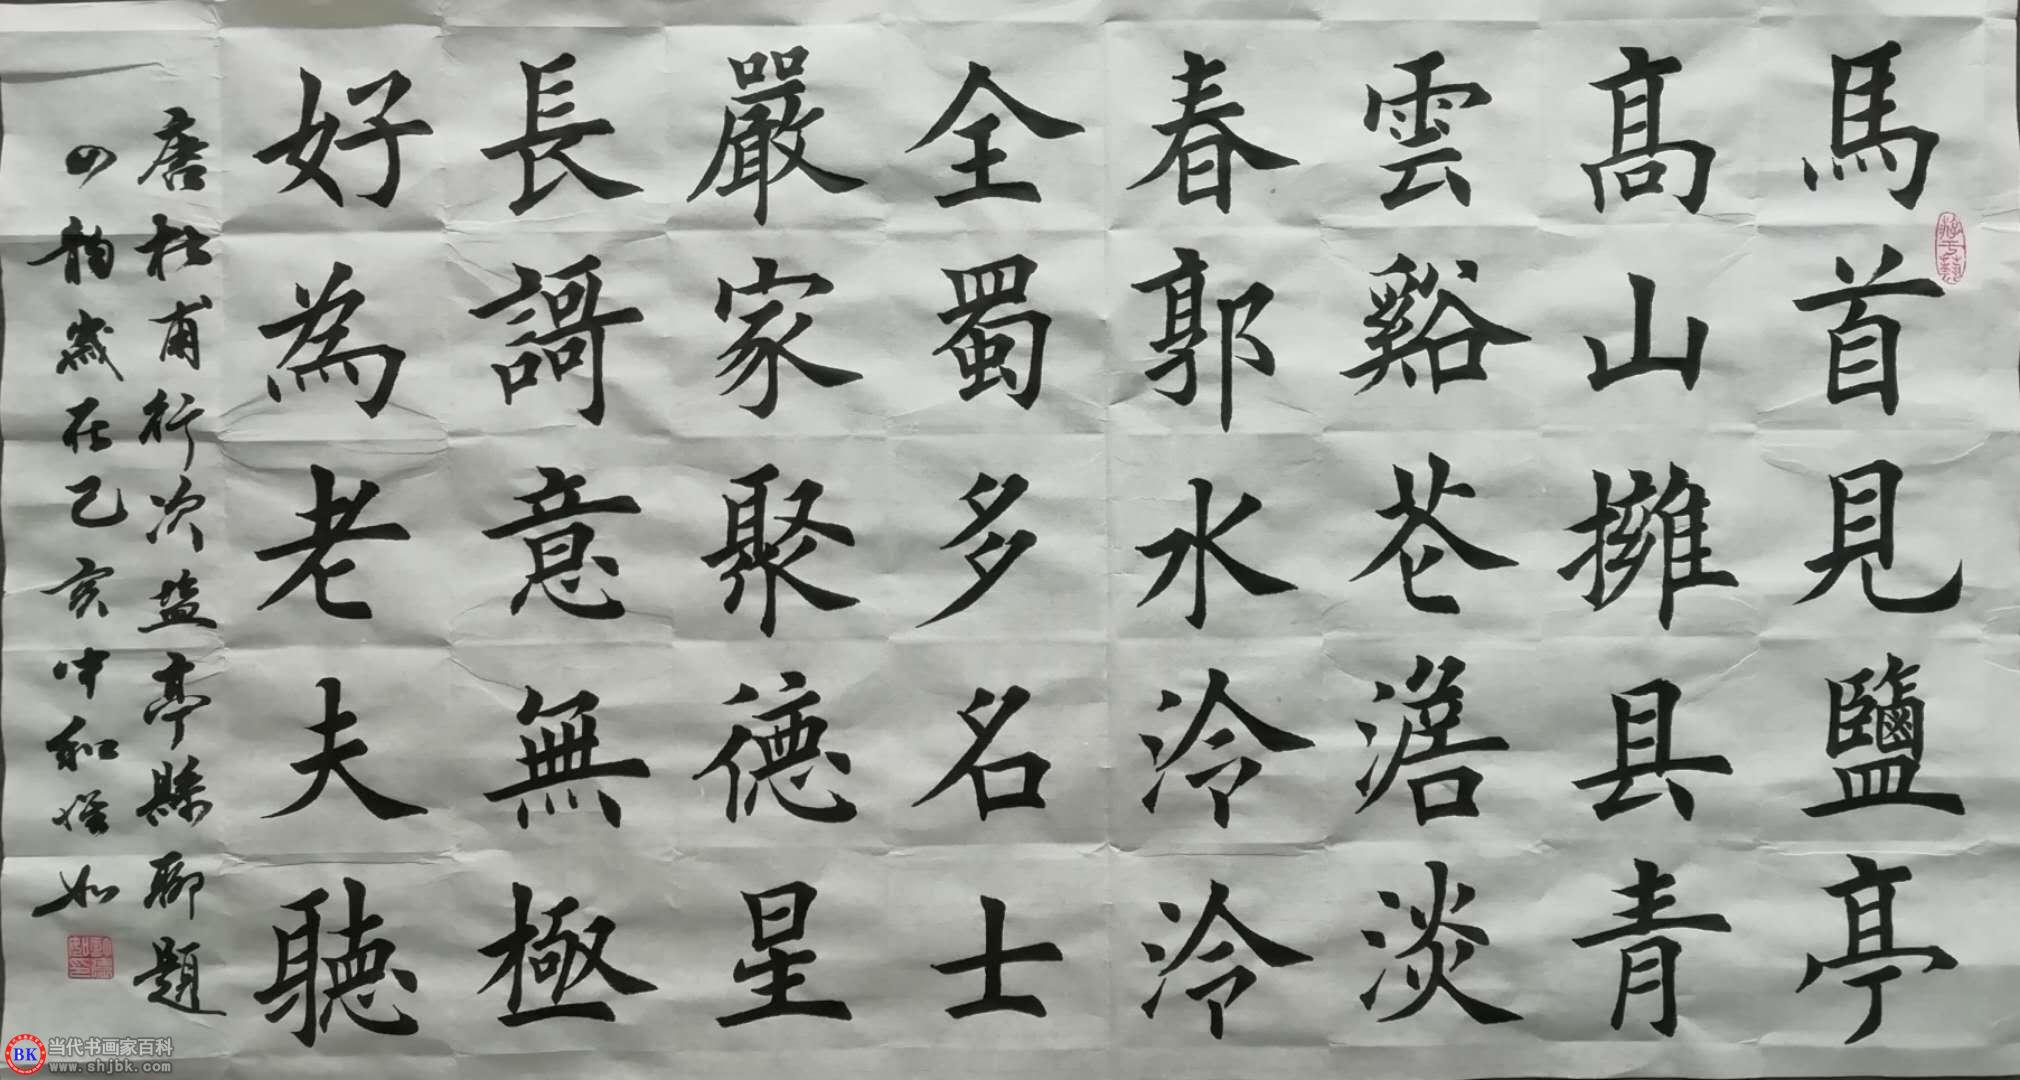 馬首見鹽亭
高山擁县青
雲谿花澹淡
春郭水泠泠
全蜀多名士
嚴家聚德星
長謌意無極
好為老夫聽
唐杜甫行次盐亭縣聊題
四韵歲在己亥中和
當代书画家百科
www.shjbk.com
BK